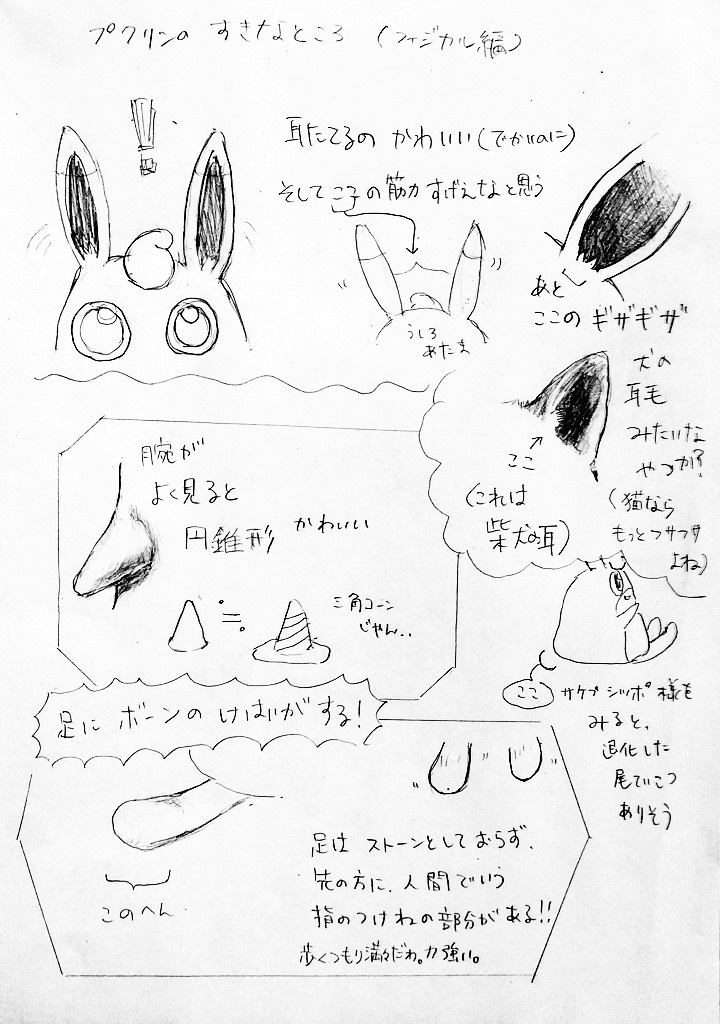 プクリンの すきなところ (フィジカル編)
耳たてるの かわいい(でかいのに)
そして ここの筋力 すげえなと思う
うしろ
あたま
あと
ここの ギザギザ
犬の
耳毛
みたいな
やつか?
(猫なら
もっとフサフサ
よね)
ここ
(これは
柴犬の耳)
腕が
よく見ると
円錐形 かわいい
≒。
三角コーン
じゃん..
ここ サケブシッポ様を
みると、
退化した
尾てい骨
ありそう
足に ボーンの けはいがする!
このへん
足は ストーンとしておらず、
先の方に、人間でいう
指のつけねの部分がある!!
歩くつもり満々だわ。力強い。